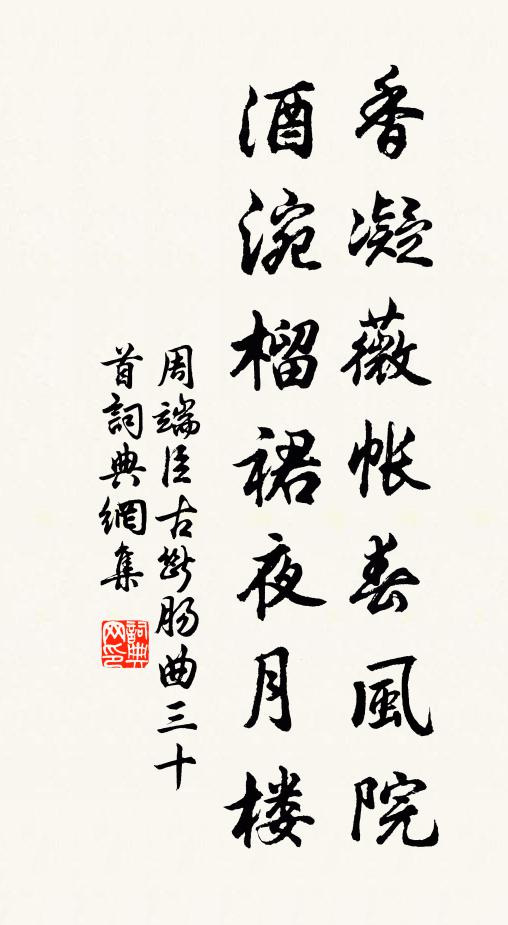 香凝薇帐春風院
酒涴榴裙夜月楼
周端臣古斷肠曲三十
首詞典網集
詞典网印